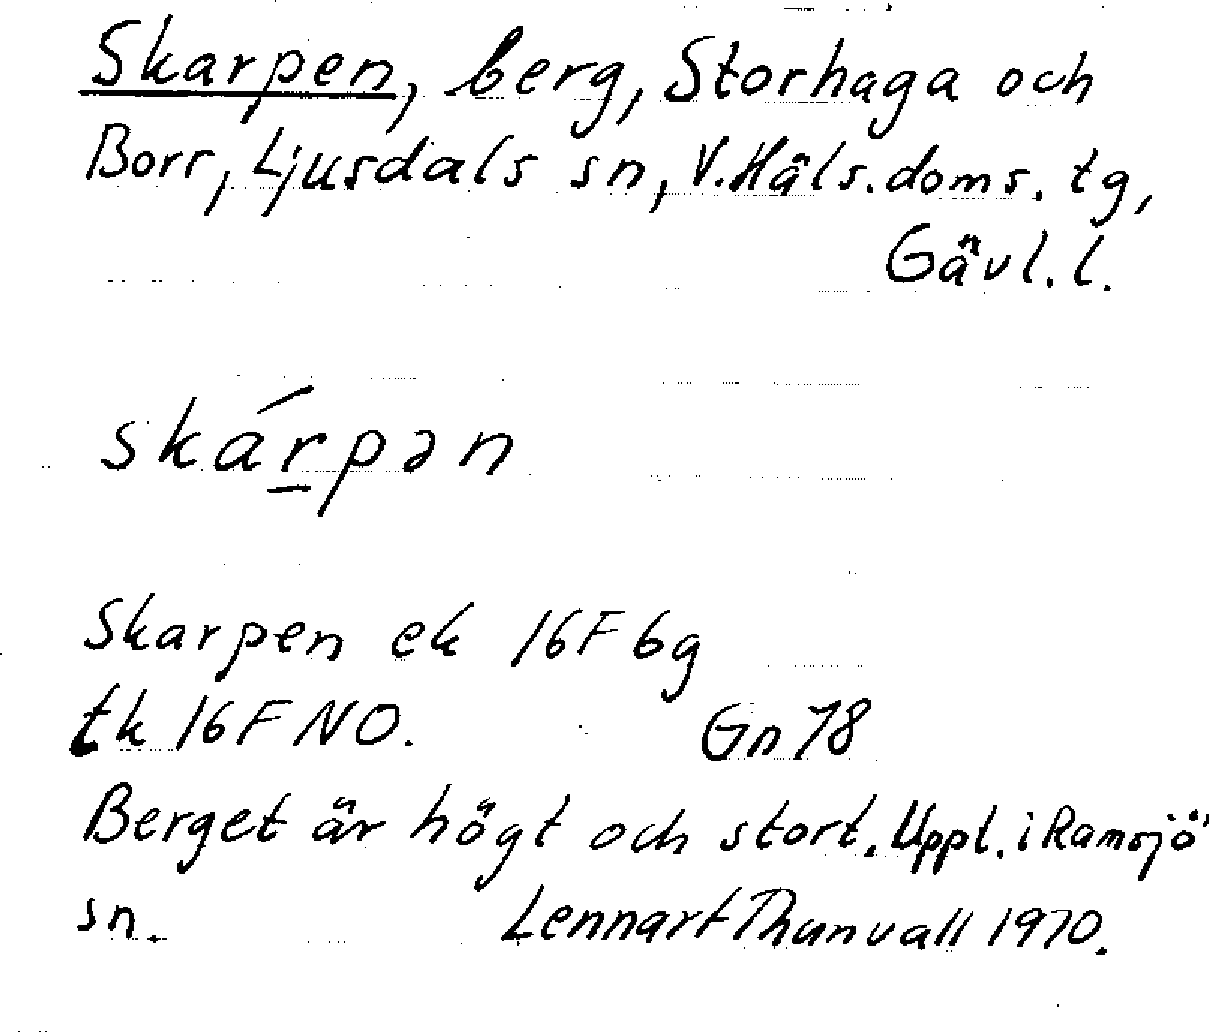 Skarpen, berg, Storhaga och
Borr, Ljusdals sn, V.Häls.doms.tg,
Gävl.l.
skárpən
Skarpen ek 16F6g
tk 16F NO. Gn 78
Berget är högt och stort. Uppt. i Ramsjö
sn. Lennart Thunvall 1970.